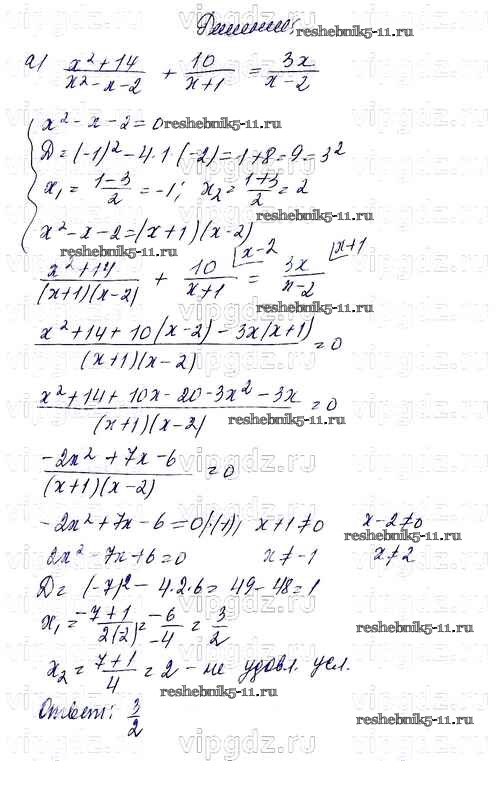 Решение: reshebnik5-11.ru
а) (x²+14)/(x²-x-2) + 10/(x+1) = 3x/(x-2)
x²-x-2=0 reshebnik5-11.ru
D=(-1)²-4·1·(-2)=1+8=9=3²
x₁=(1-3)/2=-1; x₂=(1+3)/2=2
reshebnik5-11.ru
x²-x-2=(x+1)(x-2)
reshebnik5-11.ru
(x²+14)/((x+1)(x-2)) + 10/(x+1) [x-2 = 3x/(x-2) [x+1
(x²+14+10(x-2)-3x(x+1))/((x+1)(x-2)) =0
reshebnik5-11.ru
(x²+14+10x-20-3x²-3x)/((x+1)(x-2)) =0
reshebnik5-11.ru
(-2x²+7x-6)/((x+1)(x-2)) =0
-2x²+7x-6=0|·(-1); x+1≠0 x-2≠0
2x²-7x+6=0 x≠-1 x≠2
D=(-7)²-4·2·6=49-48=1
x₁=(-7+1)/(2(2))=(-6)/(-4)=3/2
reshebnik5-11.ru
x₂=(7+1)/4=2 - не удовл. усл.
reshebnik5-11.ru
Ответ: 3/2
reshebnik5-11.ru
vipgdz.ru